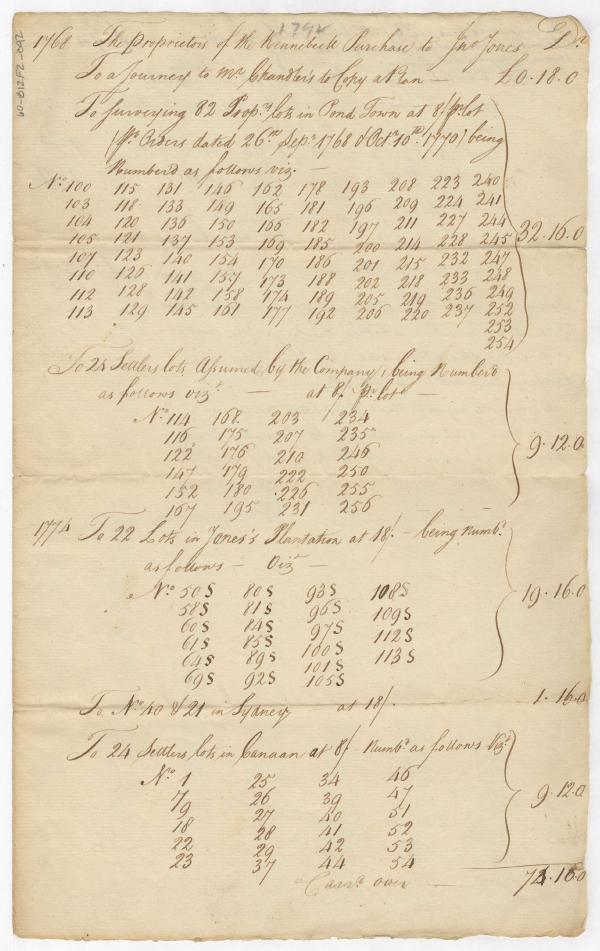 1792
60-B12F2-092
1768 The Proprietors of the Kennebeck Purchase to Jno. Jones Dr
To a Journey to Mr Chandlers to Copy a Plan — £0.18.0
To Surveying 82 Propr. lots in Pond Town at 8/ pr. lot
(pr. Orders dated 26th Sepr. 1768 & Octr. 10th. 1770) being
Numberd as follows viz. —
No. 100 115 131 146 162 178 193 208 223 240
103 118 133 149 165 181 196 209 224 241
104 120 136 150 166 182 197 211 227 244
105 121 137 153 169 185 200 214 228 245 32.16.0
107 123 140 154 170 186 201 215 232 247
110 126 141 157 173 188 202 218 233 248
112 128 142 158 174 189 205 219 236 249
113 129 145 161 177 192 206 220 237 252
253
254
To 24 Settlers lots Assumed, by the Company, being Numberd
as follows vizt. — at 8/ pr. lot —
No. 114 168 203 234
116 175 207 235
122 176 210 246 9.12.0
147 179 222 250
152 180 226 255
167 195 231 256
1774 To 22 Lots in Jones's Plantation at 18/. — being Numbd.
as follows — Vizt —
No. 50S 80S 93S 108S 19.16.0
58S 81S 96S 109S
60S 84S 97S 112S
61S 85S 100S 113S
64S 89S 101S
69S 92S 105S
To. No. 40 & 21 in Sydney at 18/. 1.16.0
To 24 Settlers lots in Canaan at 8/. Numbd. as follows Vizt
No. 1 25 34 46
7 26 39 47 9.12.0
9 27 40 51
18 28 41 52
22 29 42 53
23 37 44 54
Carrd. over — 74.10.0